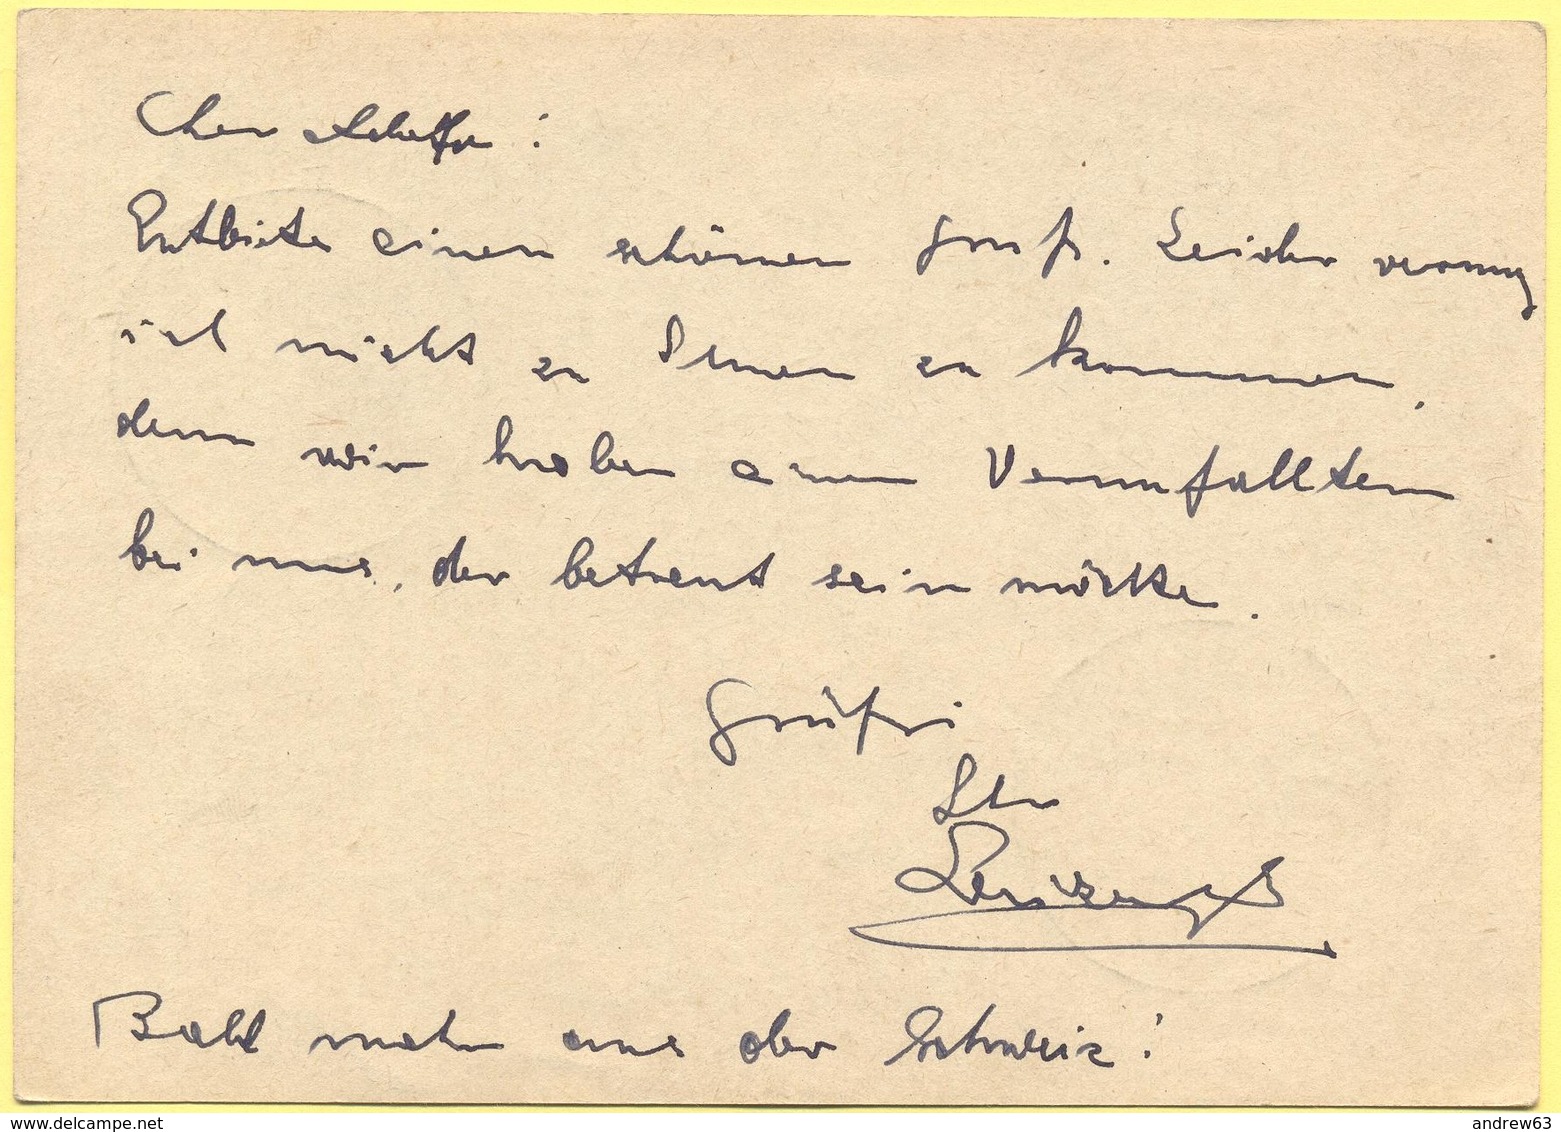 Cher
Entbiete einen schönen Gruß. Leider vermag
ich nicht zu Ihnen zu kommen,
denn wir haben einen Verunfallten
bei uns, der betreut sein möchte.
Grüße
Ihr
Bald mehr aus der Schweiz!
www.delcampe.net
andrew63